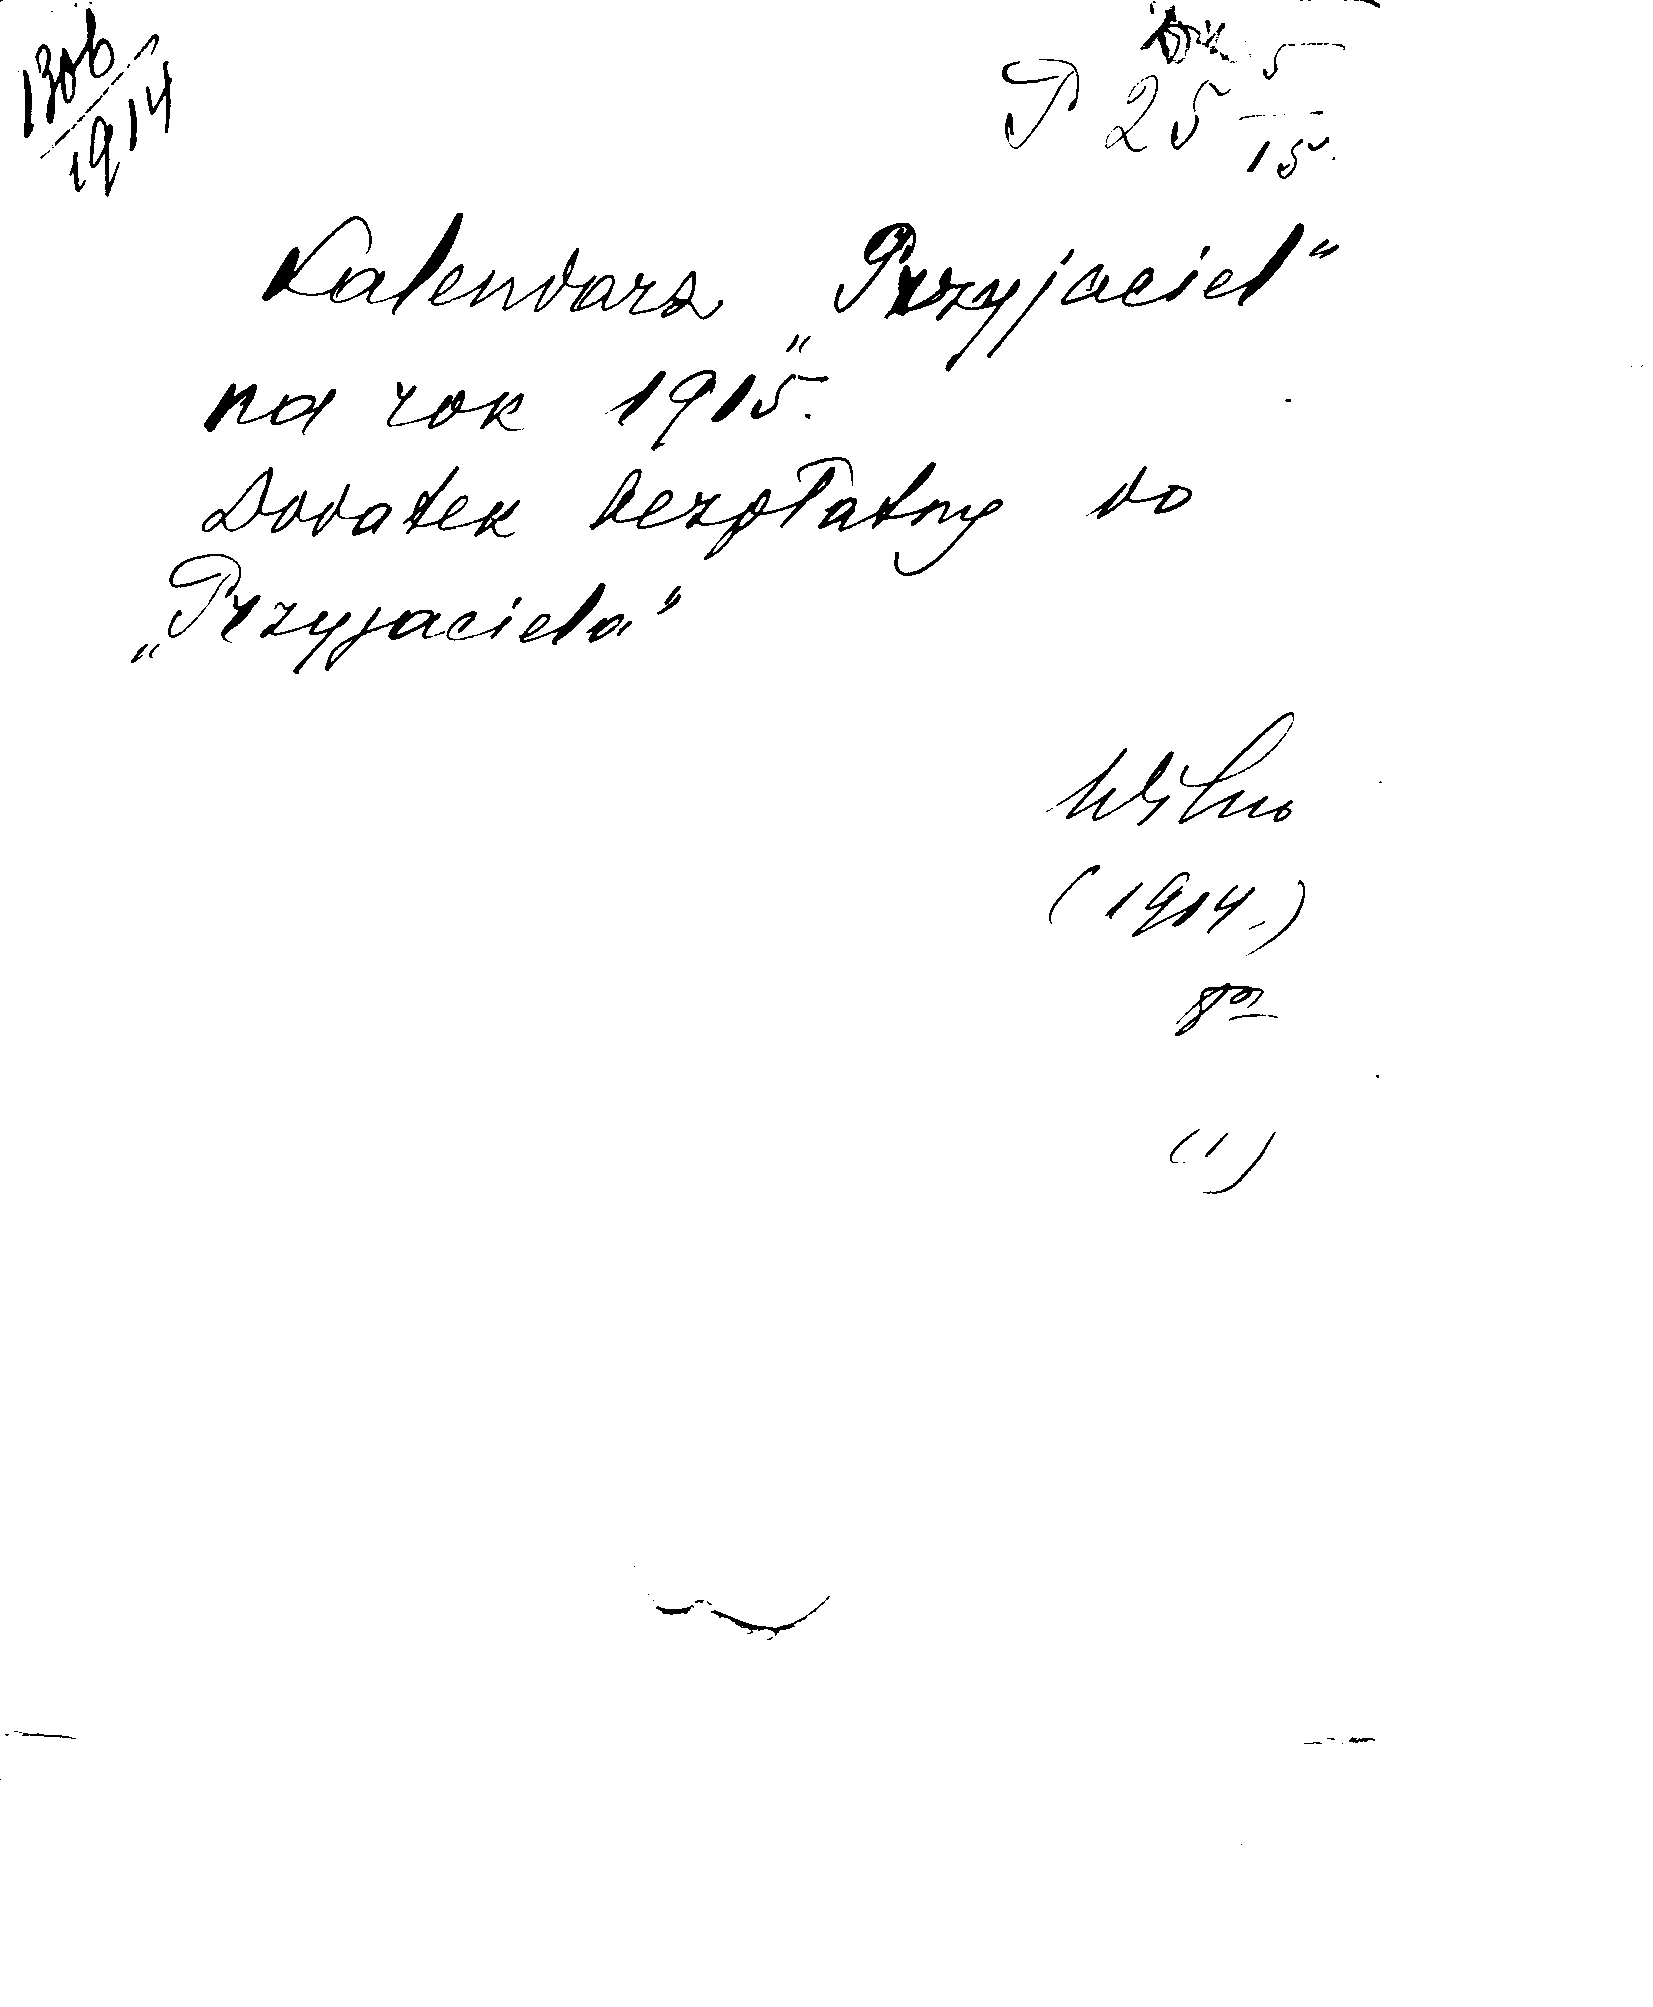 1306/1914
P 25 5/15.
Kalendarz „Przyjaciel“
na rok 1915.
Dodatek bezpłatny do
„Przyjaciela“
Wilno
(1914.)
8°
(1)